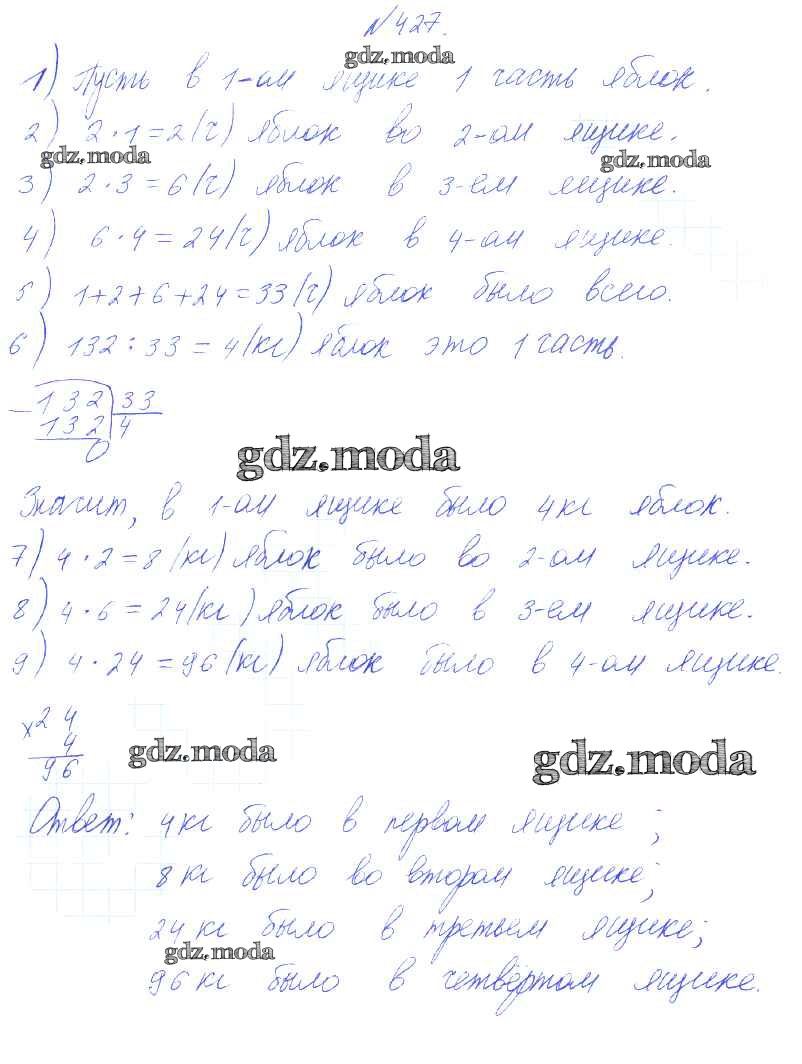 №427.
gdz.moda
1) Пусть в 1-ом ящике 1 часть яблок.
2) 2·1=2(ч) яблок во 2-ом ящике.
gdz.moda gdz.moda
3) 2·3=6(ч) яблок в 3-ем ящике.
4) 6·4=24(ч) яблок в 4-ом ящике.
5) 1+2+6+24=33(ч) яблок было всего.
6) 132:33=4(кг) яблок это 1 часть.
132 33
132 4
0
gdz.moda
Значит, в 1-ом ящике было 4кг яблок.
7) 4·2=8(кг) яблок было во 2-ом ящике.
8) 4·6=24(кг) яблок было в 3-ем ящике.
9) 4·24=96(кг) яблок было в 4-ом ящике.
×24
4
96
gdz.moda gdz.moda
Ответ: 4кг было в первом ящике;
8кг было во втором ящике;
24кг было в третьем ящике;
gdz.moda
96кг было в четвёртом ящике.